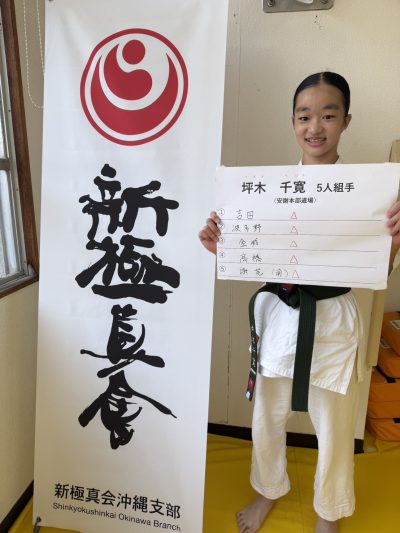 新極真会
新極真会沖縄支部
Shinkyokushinkai Okinawa Branch
坪木 千寛 5人組手
(安謝本部道場)
① 吉田 △
② 波多野 △
③ 金城 △
④ 高橋 △
⑤ △